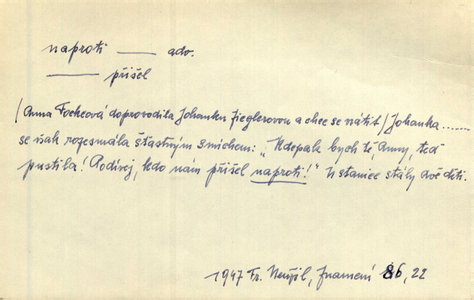 naproti —— adv.
—— přišel
(Anna Fockeová doprovodila Johanku Zieglerovou a chce se vrátit) Johanka......
se však rozesmála šťastným smíchem: „Kdepak bych tě, Anny, teď
pustila! Podívej, kdo nám přišel naproti!" U stanice stály dvě děti.
1947 Fr. Neužil, Znamení 86, 22